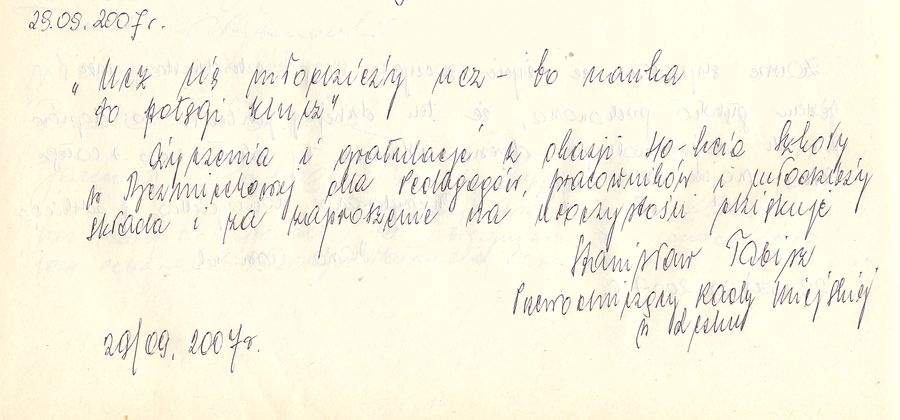 29.09.2007r.
"Ucz się młodzieży ucz - bo nauka
to potęgi klucz"
Życzenia i gratulacje z okazji 40-lecia Szkoły
w Bezmiechowej dla Pedagogów, pracowników i młodzieży
składa i za zaproszenie na uroczystość dziękuje
Stanisław Tabisz
Przewodniczący Rady Miejskiej
w Lesku
29/09.2007r.